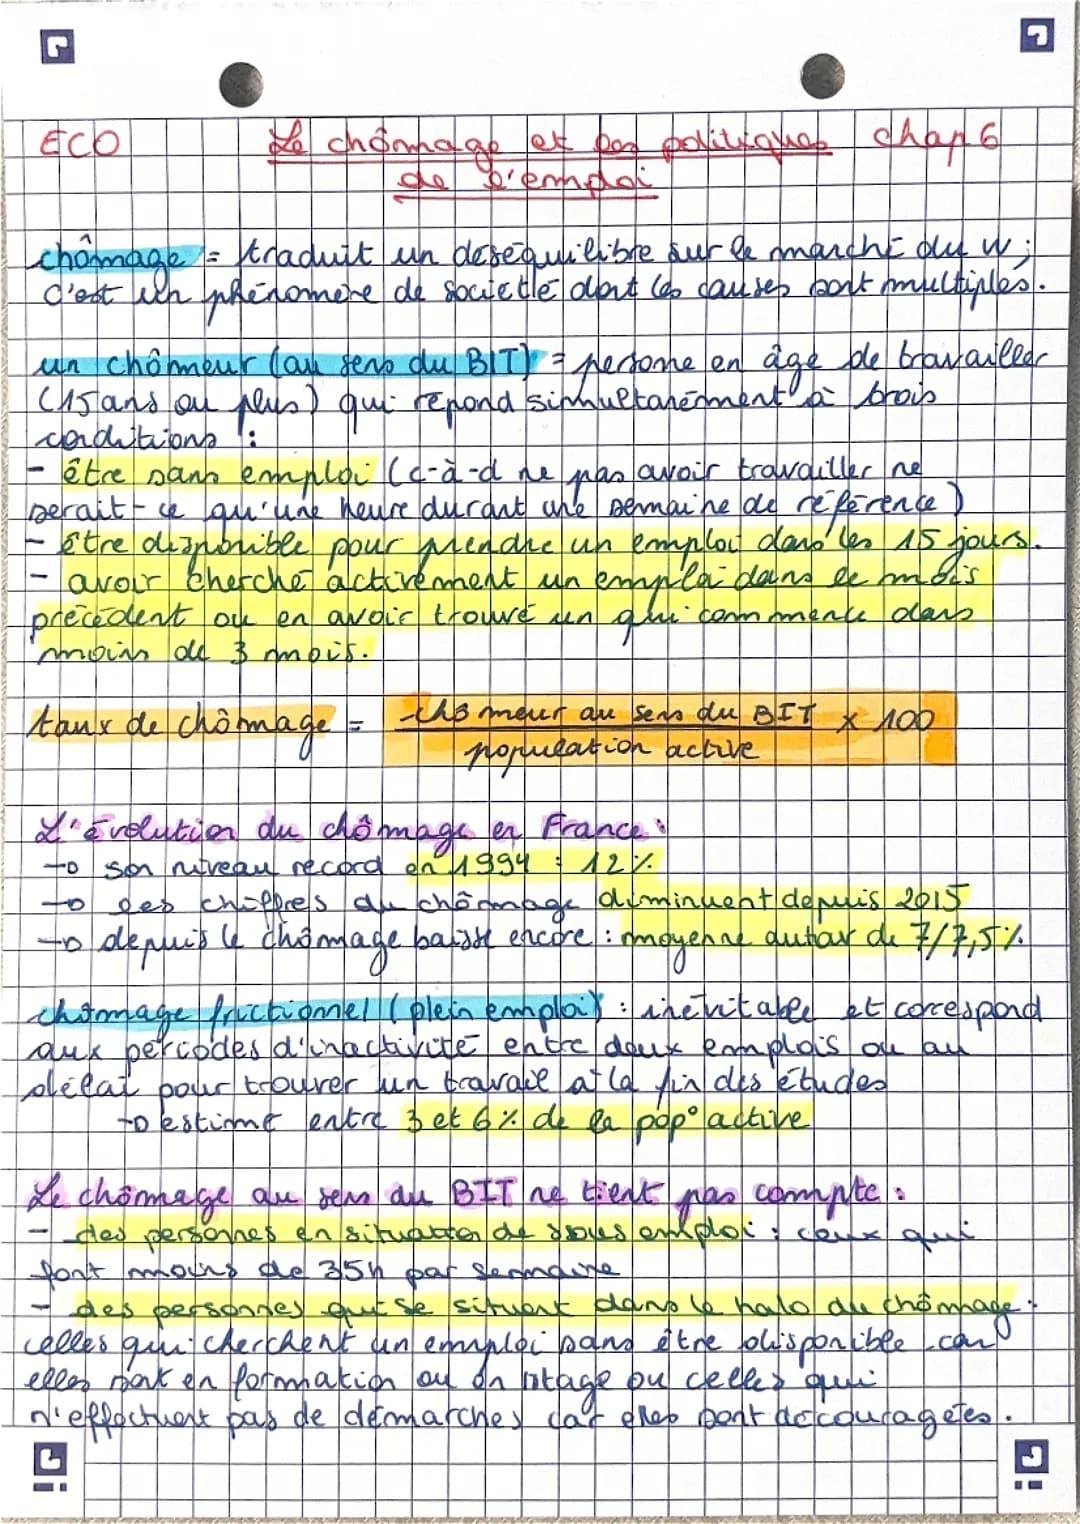 ECO Le chômage et les politiques chap 6
de l'emploi
chômage = traduit un déséquilibre sur le marché du W ;
c'est un phénomène de société dont les causes sont multiples.
un chômeur (au sens du BIT) = persone en âge de travailler
(15 ans ou plus) qui répond simultanément à trois
conditions :
- être sans emploi (c-à-d ne pas avoir travailler ne
serait-ce qu'une heure durant une semaine de référence)
- être disponible pour prendre un emploi dans les 15 jours.
- avoir cherché activement un emploi dans le mois
précédent ou en avoir trouvé un qui commence dans
moins de 3 mois.
taux de chômage = chômeur au sens du BIT x 100
population active
L'évolution du chômage en France :
→ son niveau record en 1994 : 12%
→ les chiffres du chômage diminuent depuis 2015
→ depuis le chômage baisse encore : moyenne autour de 7/7,5%.
chômage frictionnel (plein emploi) : inévitable et correspond
aux périodes d'inactivité entre deux emplois ou au
délai pour trouver un travail à la fin des études
→ estimé entre 3 et 6% de la pop° active
Le chômage au sens du BIT ne tient pas compte :
- des personnes en situation de sous emploi : ceux qui
font moins de 35h par semaine
- des personnes qui se situent dans le halo du chômage :
celles qui cherchent un emploi sans être disponible car
elles sont en formation ou en stage ou celles qui
n'effectuent pas de démarches car elles sont découragées.